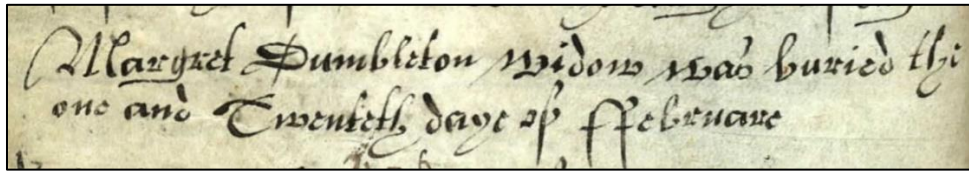 Margret Dumbleton widow was buried the
one and Twenteth daye of ffebruare